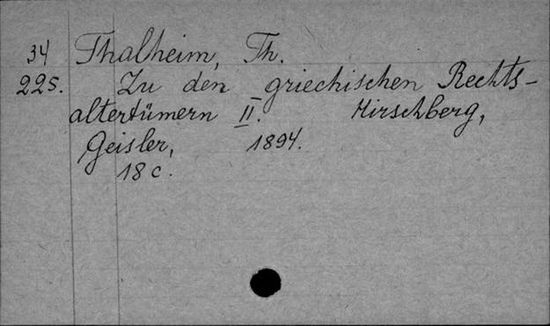 34 Thalheim, Th.
225. Zu den griechischen Rechts-
altertümern II. Hirschberg,
Geisler, 1894.
18 c.